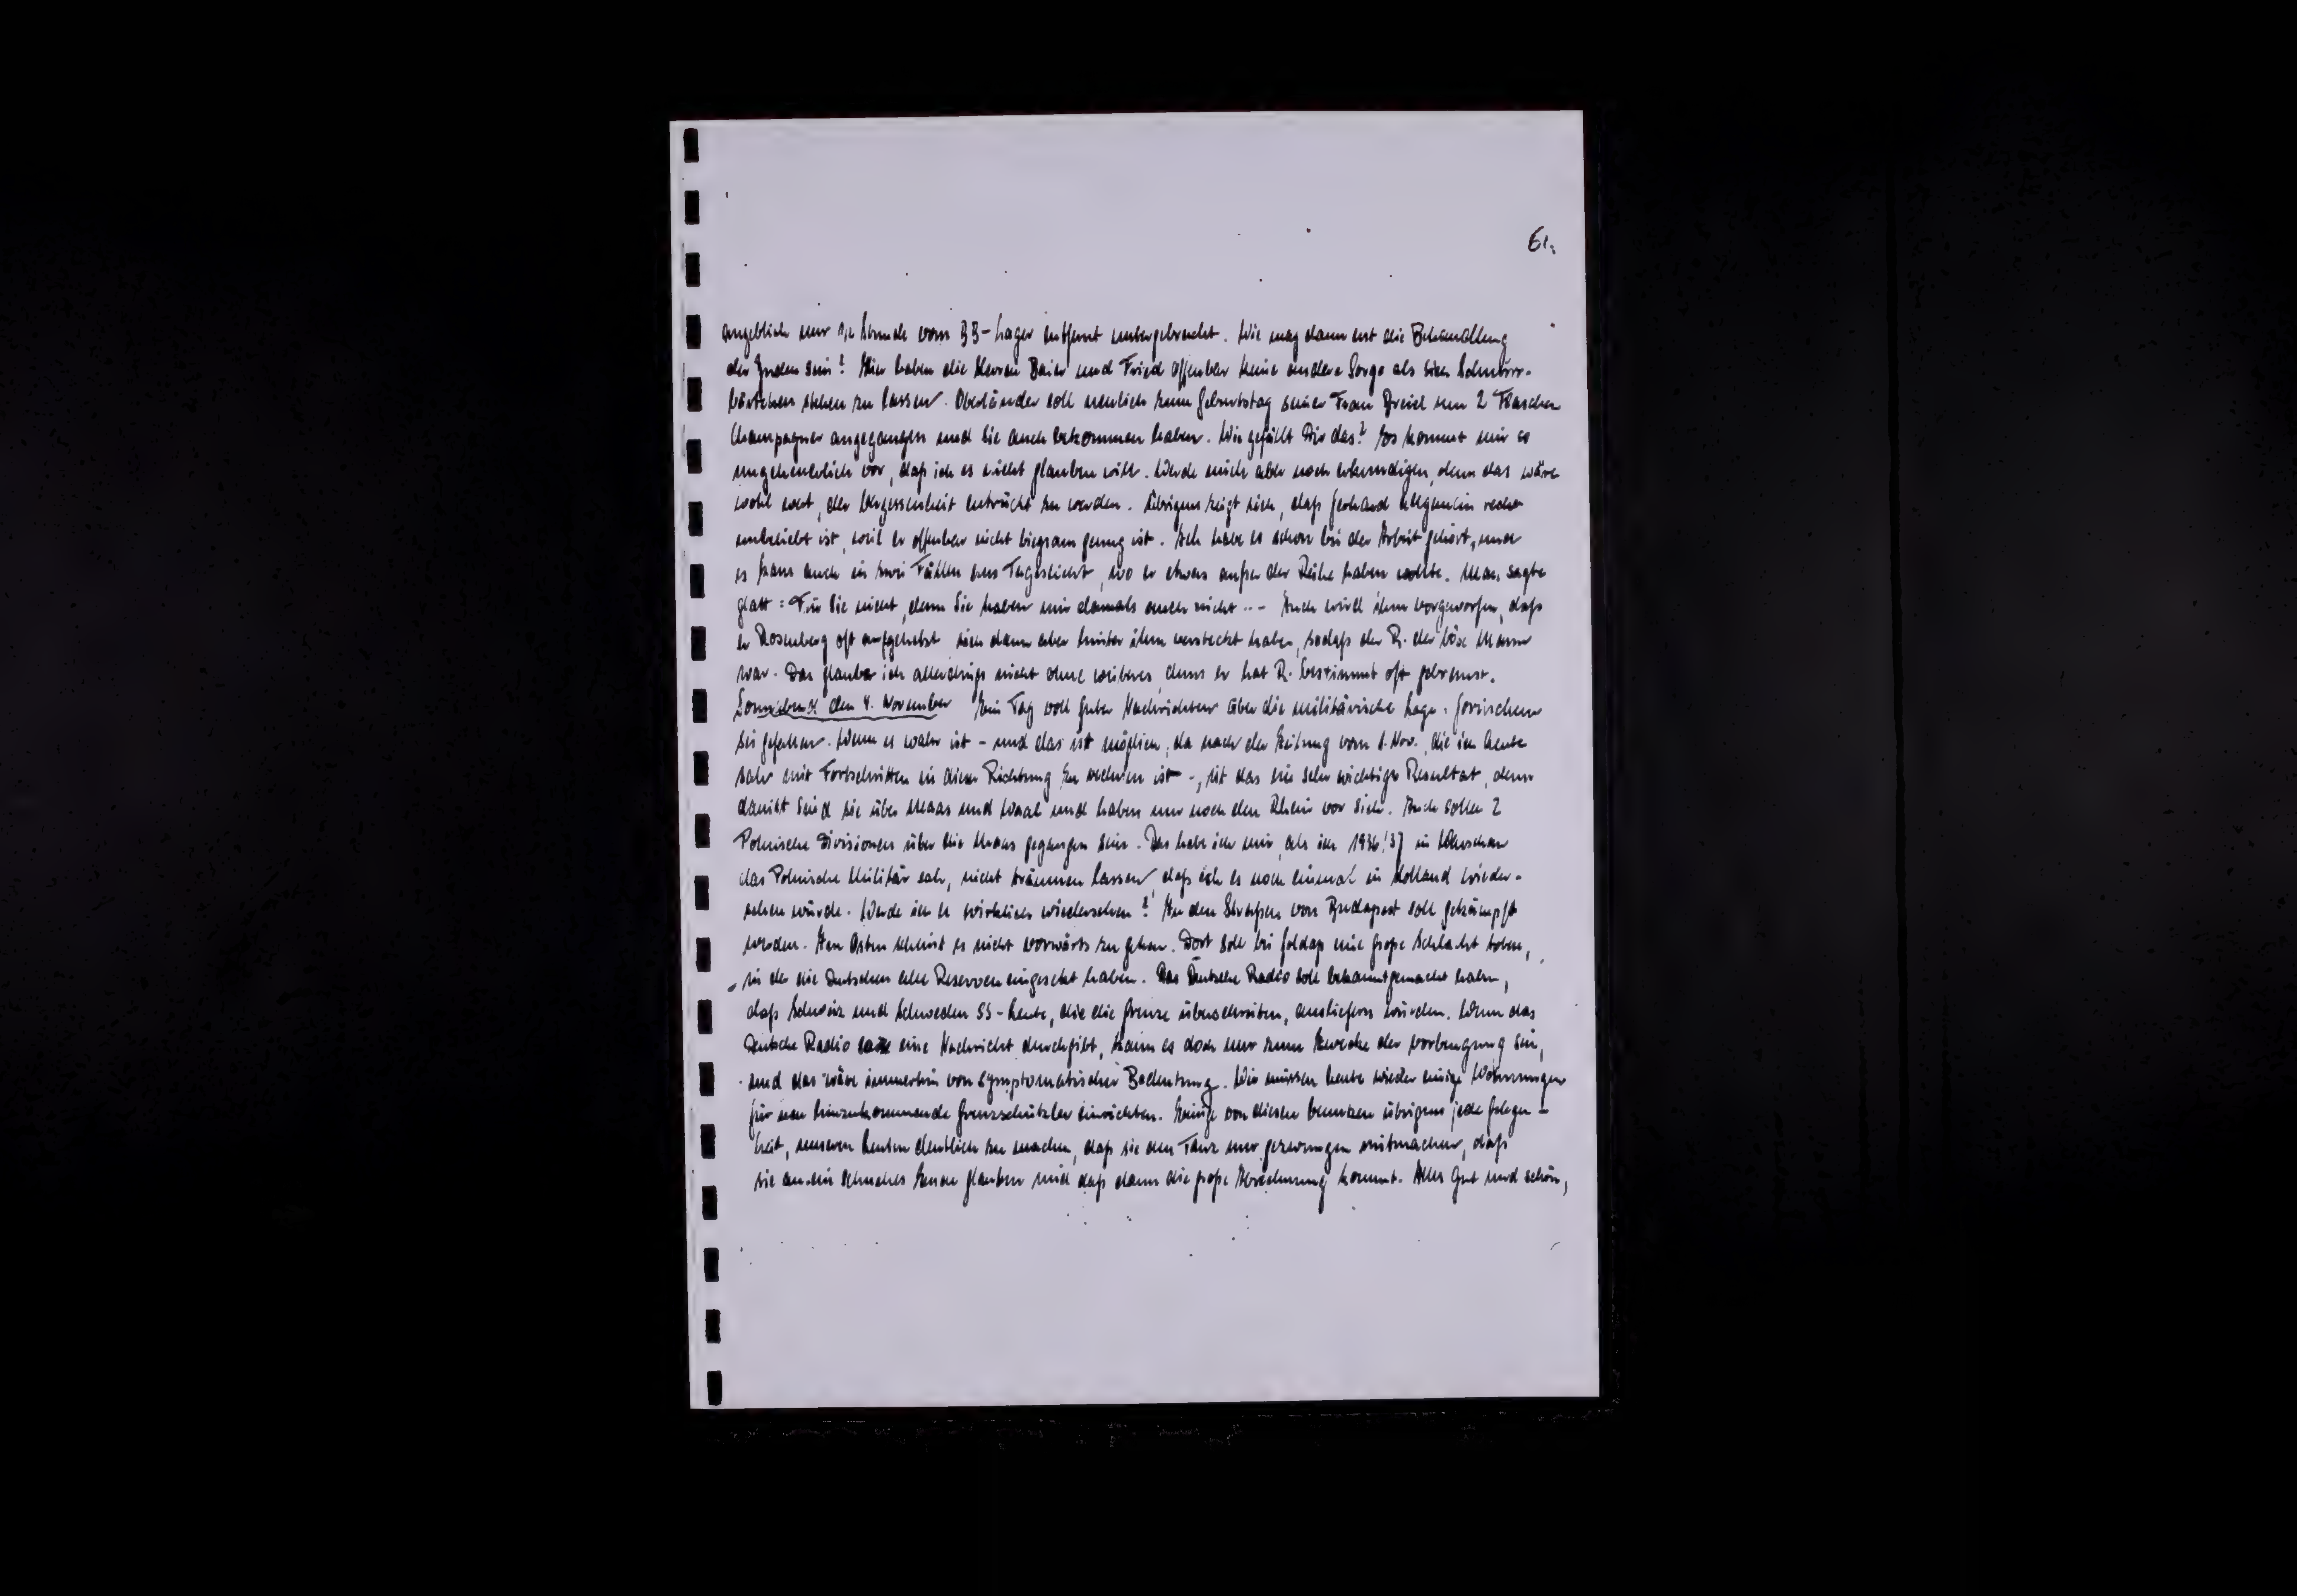 61.
angeblich nur 1/2 Stunde vom BB-Lager entfernt untergebracht. Wie mag dann erst die Behandlung
der Juden sein? Hier haben die Herren Baier und Fried offenbar keine andere Sorge als sich Schnurr-
bärtchen stehen zu lassen. Oberländer soll neulich zum Geburtstag seiner Frau Dreid um 2 Flaschen
Champagner angegangen und sie auch bekommen haben. Wie gefällt Dir das? Es kommt mir so
ungeheuerlich vor, daß ich es nicht glauben will. Werde mich aber noch erkundigen, denn das wäre
wohl wert, der Vergessenheit entrückt zu werden. Übrigens zeigt sich, daß Gerhard allgemein recht
unbeliebt ist, weil er offenbar nicht biegsam genug ist. Ich habe es schon bei der Arbeit gehört, und
es kam auch in zwei Fällen ans Tageslicht, wo er etwas außer der Reihe haben wollte. Man sagte
glatt: Für Sie nicht, denn Sie haben mir damals auch nicht ... Auch wird ihm vorgeworfen, daß
er Rosenberg oft aufgehetzt sich dann aber hinter ihm versteckt habe, sodaß der R. der böse Mann
war. Das glaube ich allerdings nicht ohne weiteres, denn er hat R. bestimmt oft gebremst.
Sonnabend den 4. November Ein Tag voll guter Nachrichten über die militärische Lage. Gorinchem
sei gefallen. Wenn es wahr ist - und das ist möglich, da nach der Zeitung vom 1. Nov., die ich heute
sah mit Fortschritten in dieser Richtung zu rechnen ist -, ist das ein sehr wichtiges Resultat, denn
damit sind sie über Maas und Waal und haben nur noch den Rhein vor sich. Auch sollen 2
Polnische Divisionen über die Maas gegangen sein. Das habe ich mir, als ich 1936/37 in Warschau
das Polnische Militär sah, nicht träumen lassen, daß ich es noch einmal in Holland wieder-
sehen würde. Werde ich es wirklich wiedersehen? In den Straßen von Budapest soll gekämpft
werden. Im Osten scheint es nicht vorwärts zu gehen. Dort soll bei Goldap eine große Schlacht toben,
in der die Deutschen alle Reserven eingesetzt haben. Das Deutsche Radio soll bekanntgemacht haben,
daß Schweiz und Schweden SS-Leute, die die Grenze überschreiten, ausliefern würden. Wenn das
Deutsche Radio so eine Nachricht durchgibt, kann es doch nur zum Zwecke der Vorbeugung sein,
und das wäre immerhin von symptomatischer Bedeutung. Wir müssen heute wieder einige Wohnungen
für neu hinzukommende Grenzschützler einrichten. Einige von diesen benutzen übrigens jede Gelegen-
heit, unseren Leuten deutlich zu machen, daß sie den Tanz nur gezwungen mitmachen, daß
sie an ein schnelles Ende glauben und daß dann die große Abrechnung kommt. Alles gut und schön,